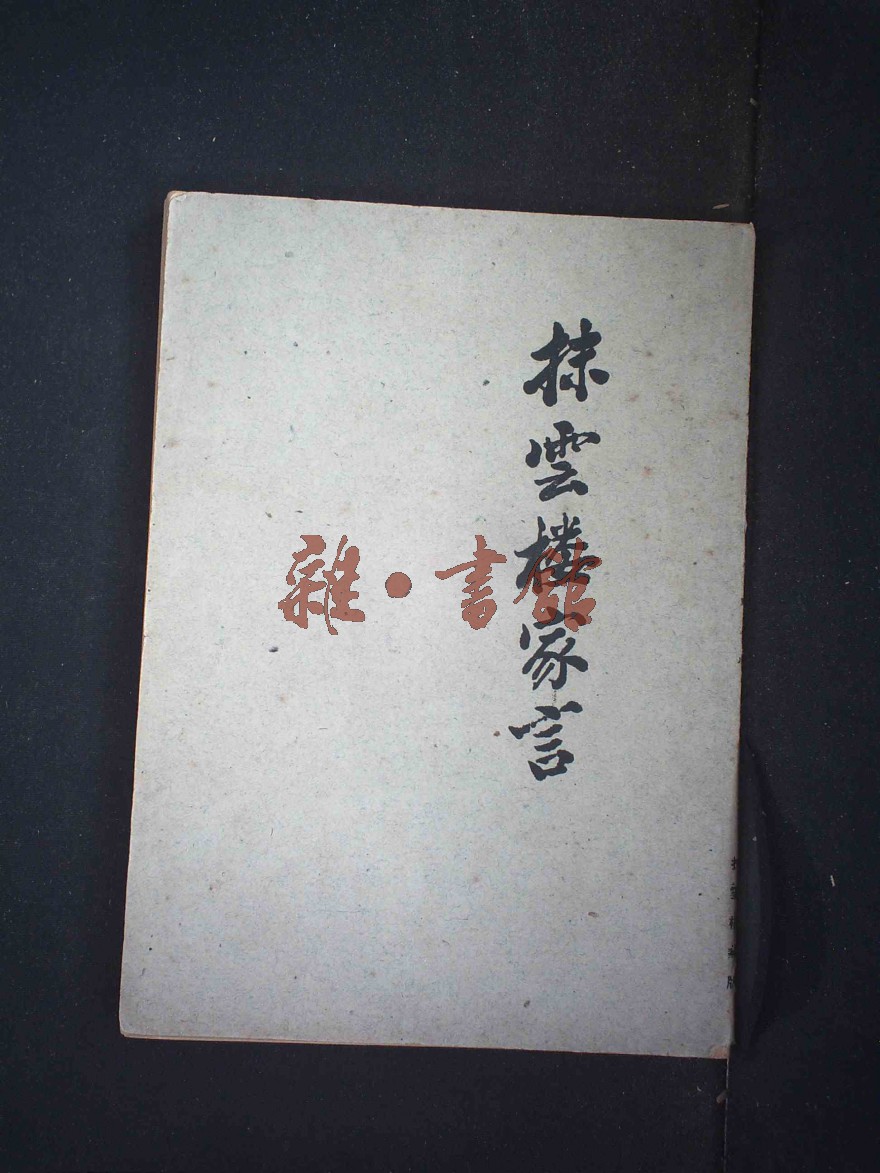 抹雲樓家言
雜·書館